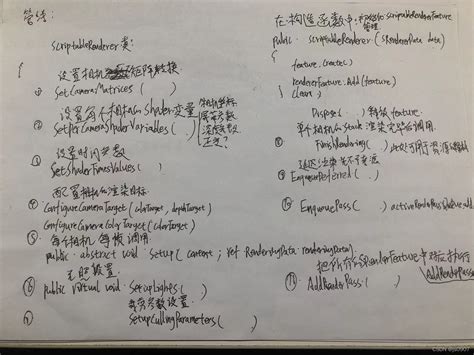 总结:
ScriptableRenderer 类:
{
设置相机矩阵转换
① SetCameraMatrices( )
设置每个相机的Shader变量
② SetPerCameraShaderVariables( )
相机坐标
屏幕参数
深度参数
正交?
设置时间参数
③ SetShaderTimesValues( )
配置相机的渲染目标
④ ConfigureCameraTarget(colorTarget, depthTarget)
ConfigureCameraColorTarget(colorTarget)
⑤ 每个相机 每帧 调用
public abstract void Setup( context ; ref RenderingData renderingData)
光照设置
⑥ public virtual void SetupLights( )
参数设置
⑦ SetupCullingParameters( )
在构造函数中, ScriptableRendererFeature
管理
public ScriptableRenderer( data)
{
feature.Create()
rendererFeature.Add(feature)
Clear
}
Dispose( ) 释放 feature.
单个相机or stack 渲染完毕后调用.
FinishRendering( ) 此处可用于资源
⑨ EnqueueDeferred( )
⑩ EnqueuePass( ) activeRenderPassQueue.add
把所有的RendererFeature中 执行
⑪ AddRenderPass( )
AddRenderPass
CSDN